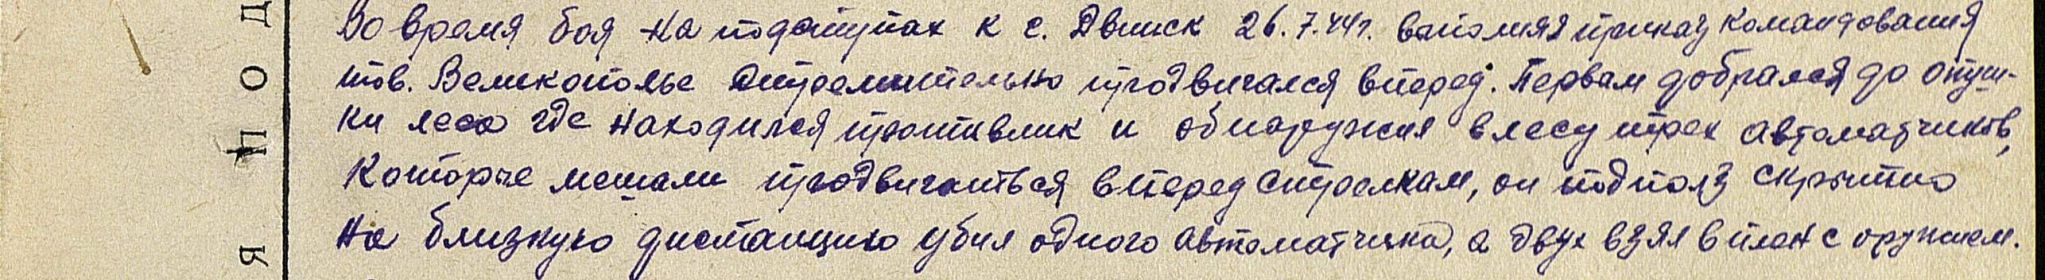 Во время боя на подступах к с. Двинск 26.7.44г. выполняя приказ командования
тов. Великополье стремительно продвигался вперед. Первым добрался до опуш-
ки леса где находился противник и обнаружил в лесу трех автоматчиков,
которые мешали продвигаться вперед стрелкам, он подполз скрытно
на близкую дистанцию убил одного автоматчика, а двух взял в плен с оружием.
Я П О Д